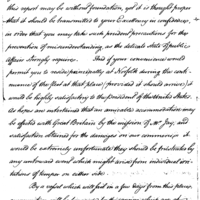 this report may be without foundation, yet it is thought proper
that it should be transmitted to your Excellency in confidence,
in order that you may take such prudent precautions for the
prevention of misunderstanding, as the delicate state of public
affairs strongly requires. This if your convenience would
permit you to reside principally at Norfolk during the con-
tinuance of the fleet at that place (provided it should arrive) it
would be highly satisfactory to the President of the United States.
He hopes an
be effected with Great Britain by the mission of Mr. Jay; and
satisfaction obtained for the damages on our commerce; it
would be extremely uncomfortable should they be frustrated by
any untoward event which might arise from individual irri-
tations of temper on either side.
By a report which will fail in a few days from this place,